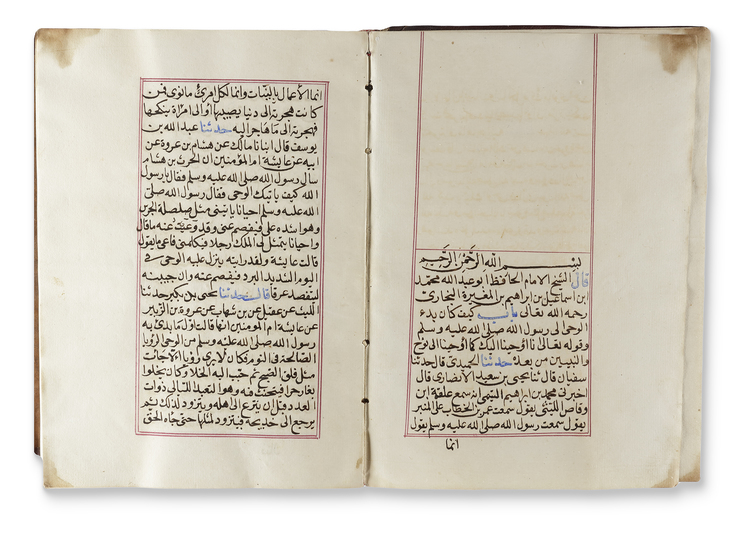 بسم الله الرحمن الرحيم
قال الشيخ الامام الحافظ ابو عبد الله محمد
ابن اسماعيل بن ابراهيم بن المغيرة البخاري
رحمه الله تعالى باب كيف كان بدء
الوحي الى رسول الله صلى الله عليه وسلم
وقوله تعالى انا اوحينا اليك كما اوحينا الى نوح
والنبيين من بعده حدثنا الحميدي قال حدثنا
سفيان قال ثنا يحيى بن سعيد الانصاري قال
اخبرني محمد بن ابراهيم التيمي انه سمع علقمة ابن
وقاص الليثي يقول سمعت عمر بن الخطاب على المنبر
يقول سمعت رسول الله صلى الله عليه وسلم يقول
انما
انما الأعمال بالنيات وانما لكل امرئ ما نوى فمن
كانت هجرته الى دنيا يصيبها أو الى امرأة ينكحها
فهجرته الى ما هاجر اليه حدثنا عبد الله بن
يوسف قال انبانا مالك عن هشام بن عروة عن
ابيه عن عايشة ام المؤمنين ان الحرث بن هشام
سال رسول الله صلى الله عليه وسلم فقال يا رسول
الله كيف ياتيك الوحي فقال رسول الله صلى
الله عليه وسلم احيانا ياتيني مثل صلصلة الجرس
وهو اشده علي فيفصم عني وقد وعيت عنه ما قال
واحيانا يتمثل لي الملك رجلا فيكلمني فاعي ما يقول
قالت عايشة ولقد رايته ينزل عليه الوحي في
اليوم الشديد البرد فيفصم عنه وان جبينه
ليتفصد عرقا قال حدثنا يحيى بن بكير حدثنا
الليث عن عقيل عن بن شهاب عن عروة بن الزبير
عن عايشة ام المومنين انها قالت اول ما بدئ به
رسول الله صلى الله عليه وسلم من الوحي الرؤيا
الصالحة في النوم فكان لا يرى رؤيا الا جاءت
مثل فلق الصبح ثم حبب اليه الخلا وكان يخلوا
بغار حرا فيتحنث فيه وهو التعبد الليالي ذوات
العدد قبل ان ينزع الى اهله ويتزود لذلك ثم
يرجع الى خديجة فيتزود لمثلها حتى جاه الحق